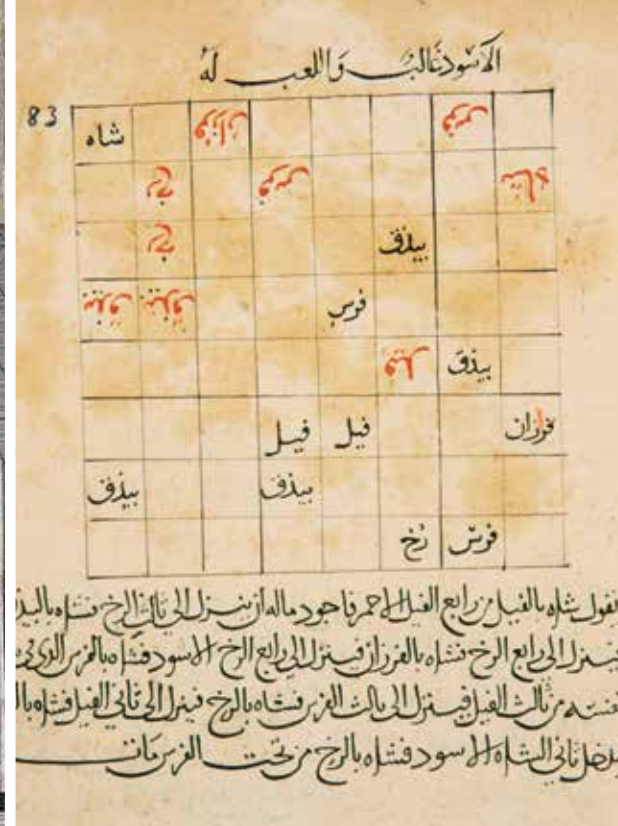 الاسود غالب واللعب له
83
فرس فرزان شاه
شاه فرس رخ
بيذق رخ
فرس بيذق بيذق
بيذق فيل
فرزان فيل فيل
بيذق بيذق
فرس رخ
نقول شاه بالفيل من رابع الفيل الاحمر فاجود ماله ان ينزل الى ثالث الرخ فشاه
فينزل الى رابع الرخ فشاه بالفرزان فينزل الى رابع الرخ الاسود فشاه بالفرس الذي
من ثالث الفيل فينزل الى ثالث الفرس فشاه بالرخ فينزل الى ثاني الفيل فشاه
ثاني الشاه الاسود فشاه بالرخ من تحت الفرس مات